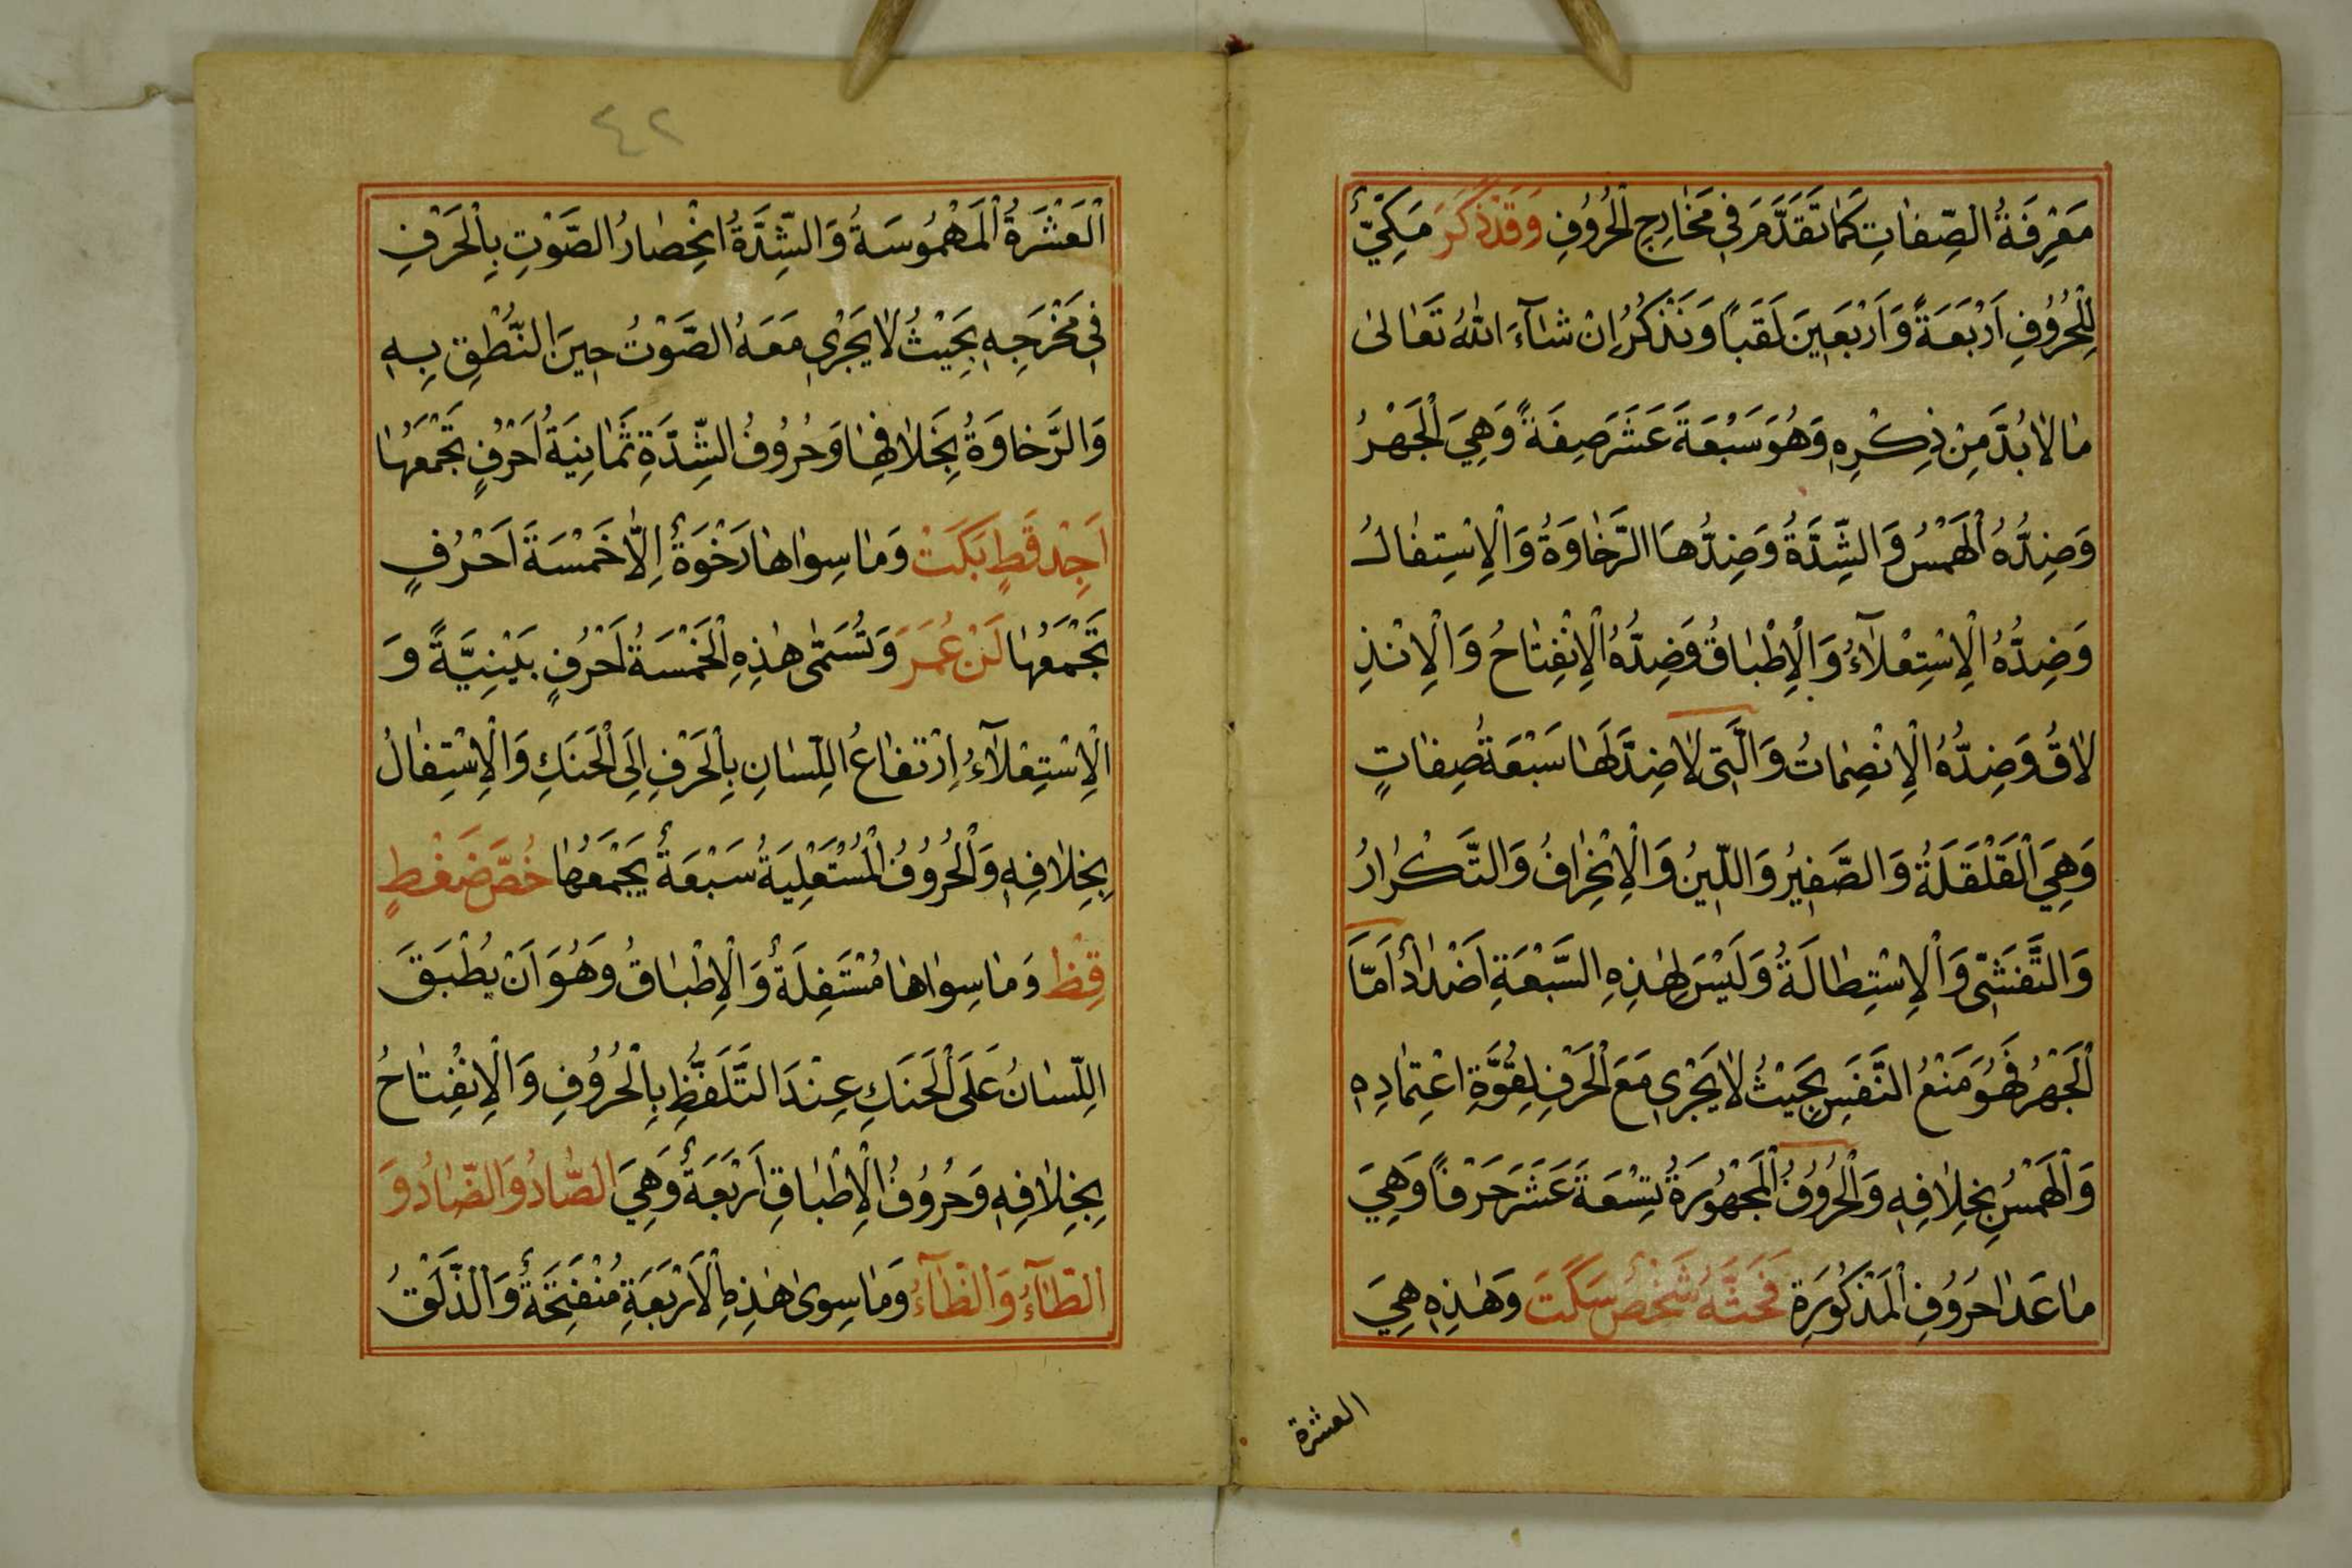 مَعْرِفَةُ الصِّفَاتِ كَمَا تَقَدَّمَ فِي مَخَارِجِ الْحُرُوفِ وَقَدْ ذَكَرَ مَكِّيٌّ
لِلْحُرُوفِ اَرْبَعَةً وَاَرْبَعِينَ لَقَبًا وَنَذْكُرُ اِنْ شَآءَ اللّٰهُ تَعَالٰى
مَا لَابُدَّ مِنْ ذِكْرِهِ وَهُوَ سَبْعَةَ عَشَرَ صِفَةً وَهِيَ الْجَهْرُ
وَضِدُّهُ الْهَمْسُ وَالشِّدَّةُ وَضِدُّهَا الرَّخَاوَةُ وَالْاِسْتِفَالُ
وَضِدُّهُ الْاِسْتِعْلَآءُ وَالْاِطْبَاقُ وَضِدُّهُ الْاِنْفِتَاحُ وَالْاِنْذِ
لَاقُ وَضِدُّهُ الْاِنْصِمَاتُ وَالَّتِى لَا ضِدَّ لَهَا سَبْعَةُ صِفَاتٍ
وَهِيَ الْقَلْقَلَةُ وَالصَّفِيرُ وَاللِّينُ وَالْاِنْحِرَافُ وَالتَّكْرَارُ
وَالتَّفَشِّى وَالْاِسْتِطَالَةُ وَلَيْسَ لِهٰذِهِ السَّبْعَةِ اَضْدَادٌ اَمَّا
الْجَهْرُ فَهُوَ مَنْعُ النَّفَسِ بِحَيْثُ لَا يَجْرِي مَعَ الْحَرْفِ لِقُوَّةِ اعْتِمَادِهِ
وَالْهَمْسُ بِخِلَافِهِ وَالْحُرُوفُ الْمَجْهُورَةُ تِسْعَةَ عَشَرَ حَرْفًا وَهِيَ
مَا عَدَا حُرُوفِ الْمَذْكُورَةِ فَحَثَّهُ شَخْصٌ سَكَتَ وَهٰذِهِ هِيَ
العشرة
٤٢
الْعَشْرَةُ الْمَهْمُوسَةُ وَالشِّدَّةُ انْحِصَارُ الصَّوْتِ بِالْحَرْفِ
فِي مَخْرَجِهِ بِحَيْثُ لَا يَجْرِي مَعَهُ الصَّوْتُ حِينَ النُّطْقِ بِهِ
وَالرَّخَاوَةُ بِخَلَافِهَا وَحُرُوفُ الشِّدَّةِ ثَمَانِيَةُ اَحْرُفٍ تَجْمَعُهَا
اَجِدْ قَطٍ بَكَتْ وَمَا سِوَاهَا رَخْوَةٌ اِلَّا خَمْسَةَ اَحْرُفٍ
تَجْمَعُهَا لَنْ عُمَرَ وَتُسَمَّى هٰذِهِ الْخَمْسَةُ اَحْرُفٍ بَيْنِيَّةً وَ
الْاِسْتِعْلَآءُ اِرْتَفَاعُ اللِّسَانِ بِالْحَرْفِ اِلَى الْحَنَكِ وَالْاِسْتِفَالُ
بِخِلَافِهِ وَالْحُرُوفُ الْمُسْتَعْلِيَةُ سَبْعَةٌ يَجْمَعُهَا خُصَّ ضَغْطٍ
قِظْ وَمَا سِوَاهَا مُسْتَفِلَةٌ وَالْاِطْبَاقُ وَهُوَ اَنْ يُطْبَقَ
اللِّسَانُ عَلَى الْحَنَكِ عِنْدَ التَّلَفُّظِ بِالْحُرُوفِ وَالْاِنْفِتَاحُ
بِخِلَافِهِ وَحُرُوفُ الْاِطْبَاقِ اَرْبَعَةٌ وَهِيَ الصَّادُ وَالضَّادُ وَ
الطَّآءُ وَالظَّآءُ وَمَا سِوٰى هٰذِهِ الْاَرْبَعَةِ مُنْفَتِحَةٌ وَالذَّلَقُ